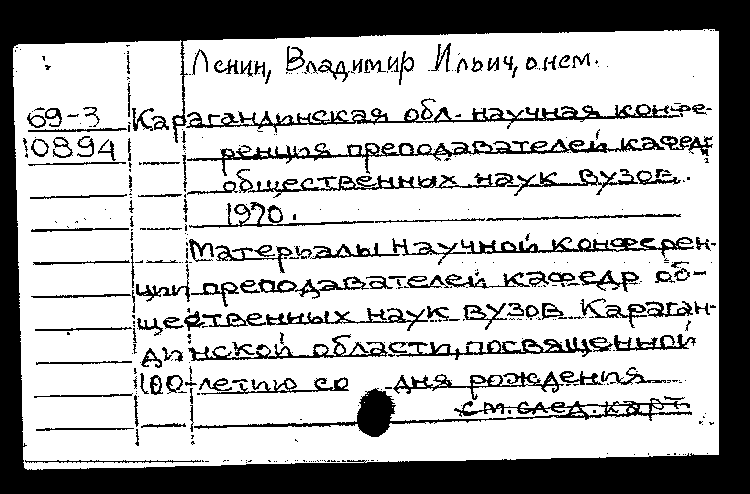 Ленин, Владимир Ильич, о нем.
69-3 Карагандинская обл. научная конфе-
10894 ренция преподавателей кафедр
общественных наук вузов.
1970.
Материалы научной конферен-
ции преподавателей кафедр об-
щественных наук вузов Караган-
динской области, посвященной
100-летию со дня рождения
см. след. карт.